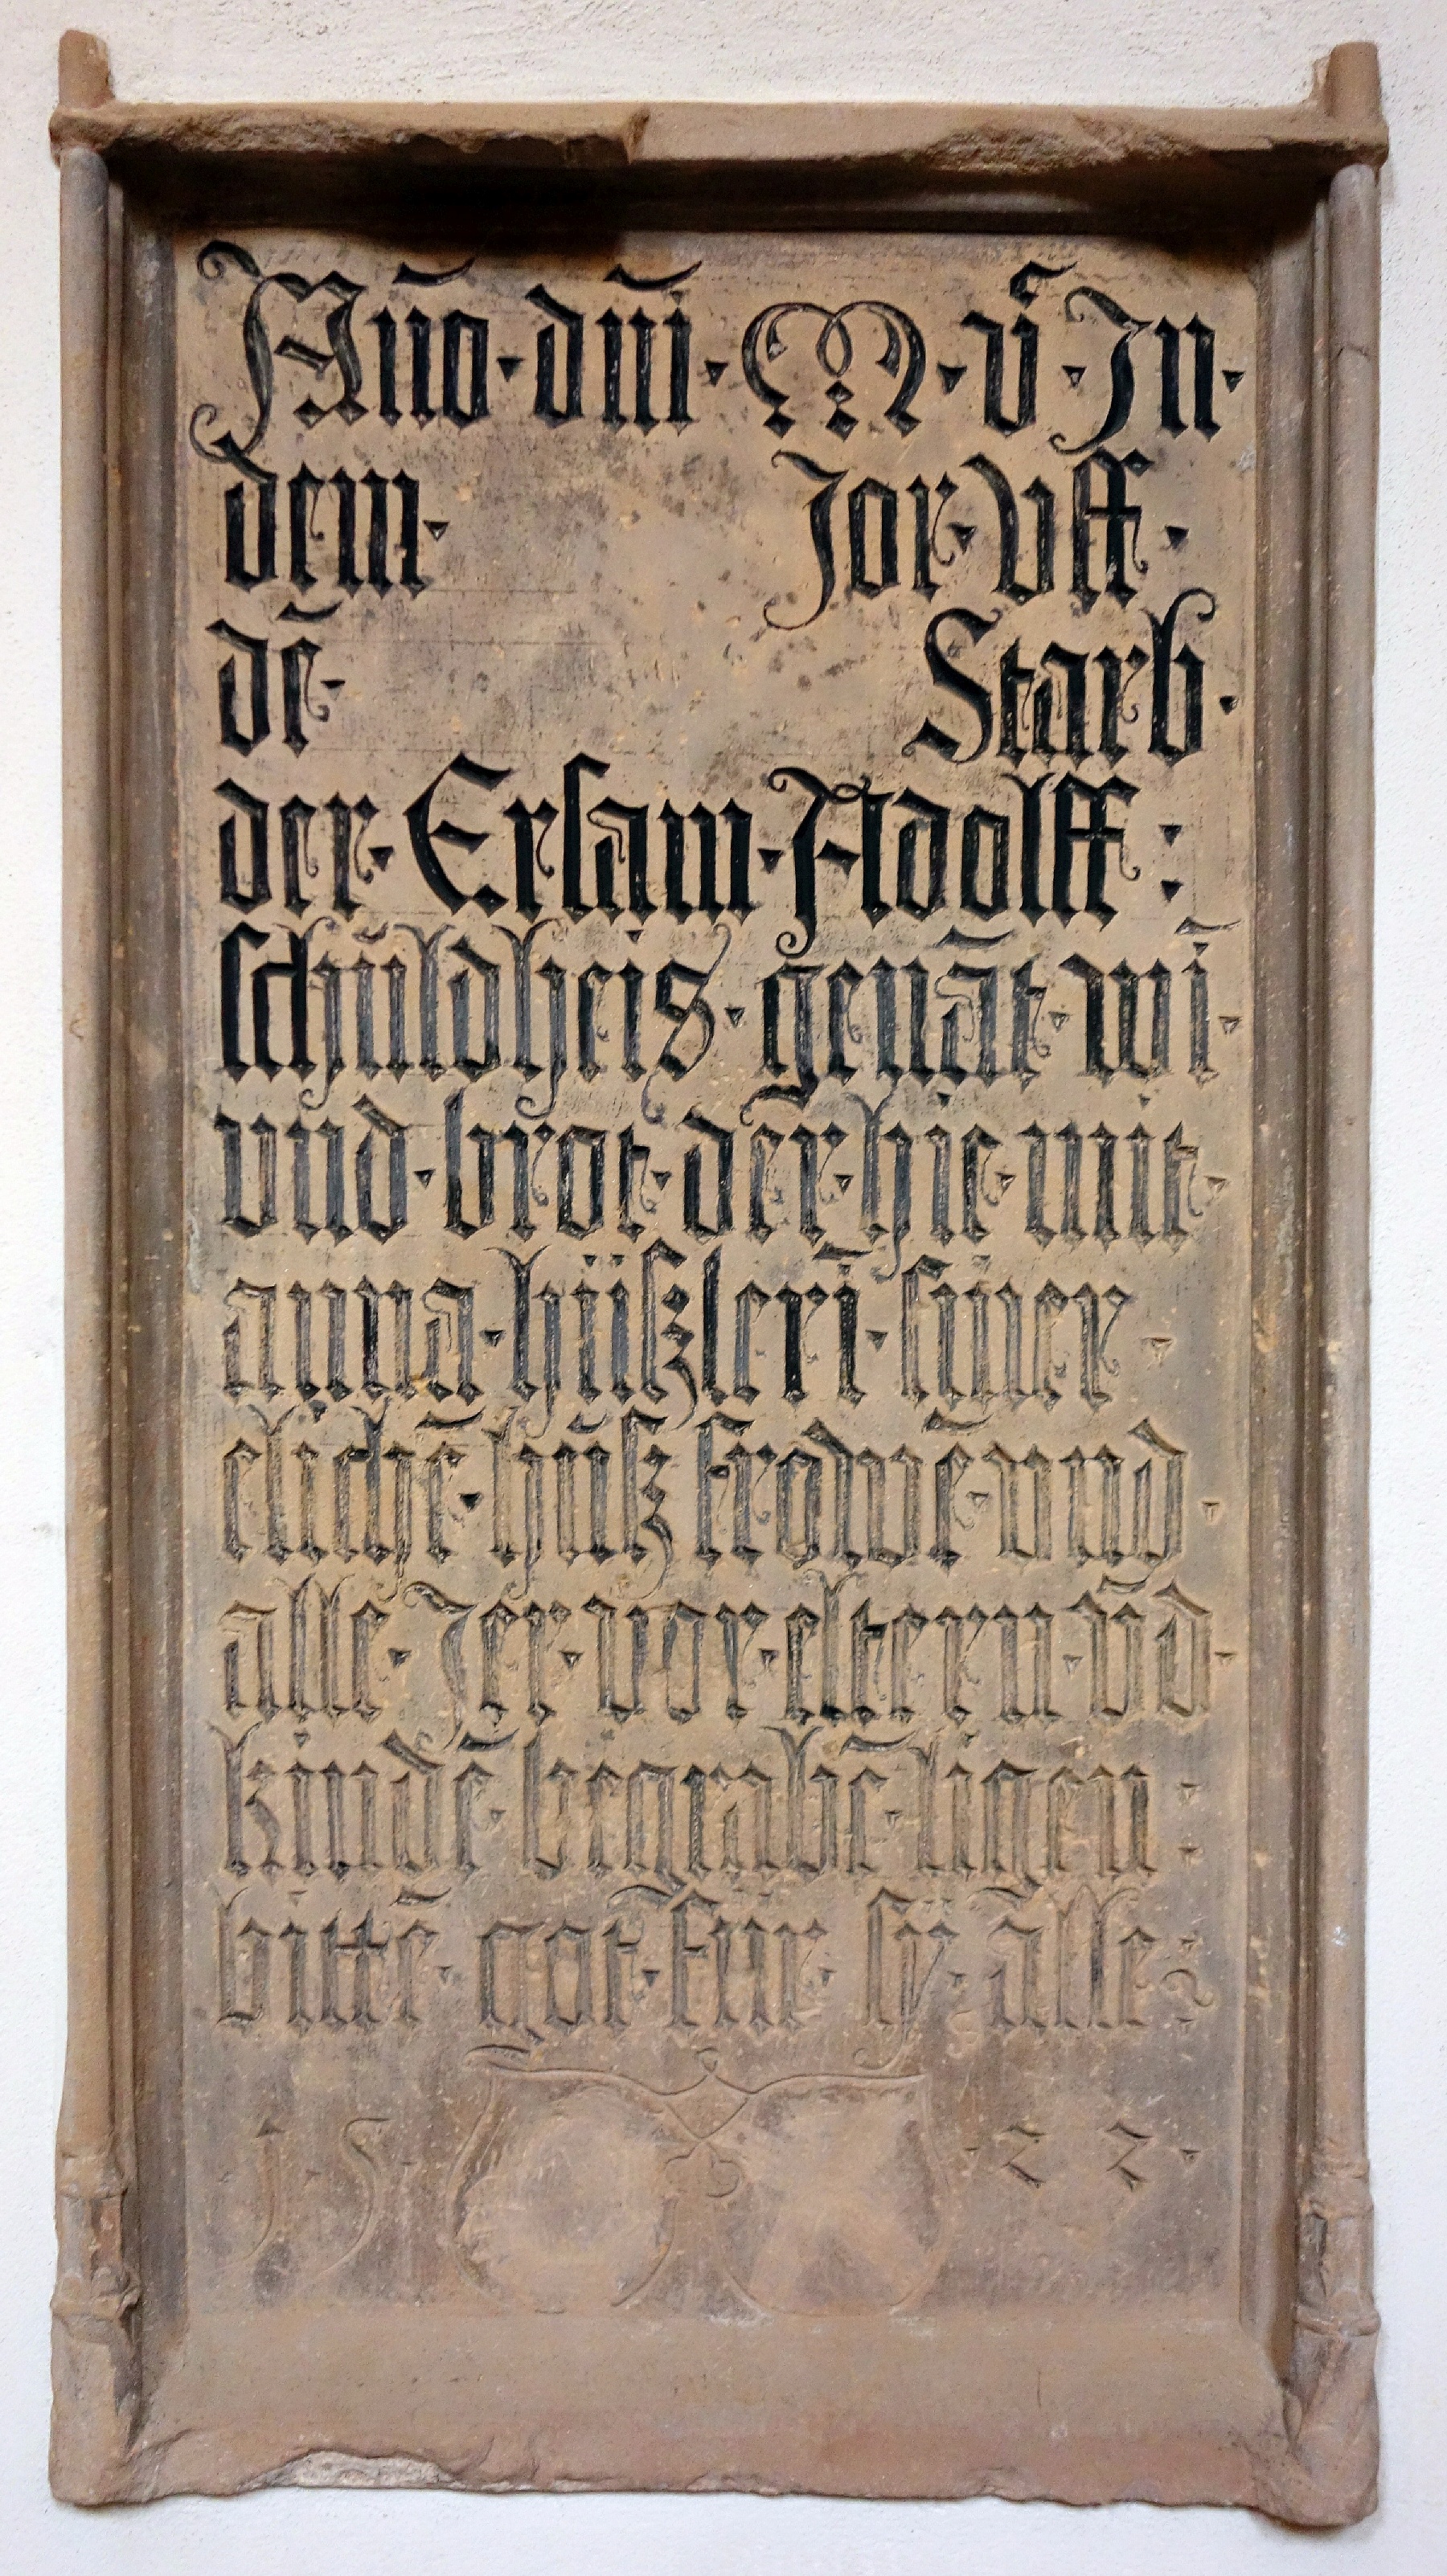 Año · dñi · M · vͨ · Jn ·
dem · Jor · Vff ·
dē · Starb ·
der · Ersam · Adolff :
schuͦldheis · genāt · wī ·
vnd · brot · der · hie · mit ·
anna · hüßlerī · siner ·
elichē · huͦß frowē · vnd ·
alle · Jer · vor · eltern · vñd ·
kindē · begrabē · ligen :
bittē · got · für · sÿ · alle :
1 · 5 · · 2 2 ·